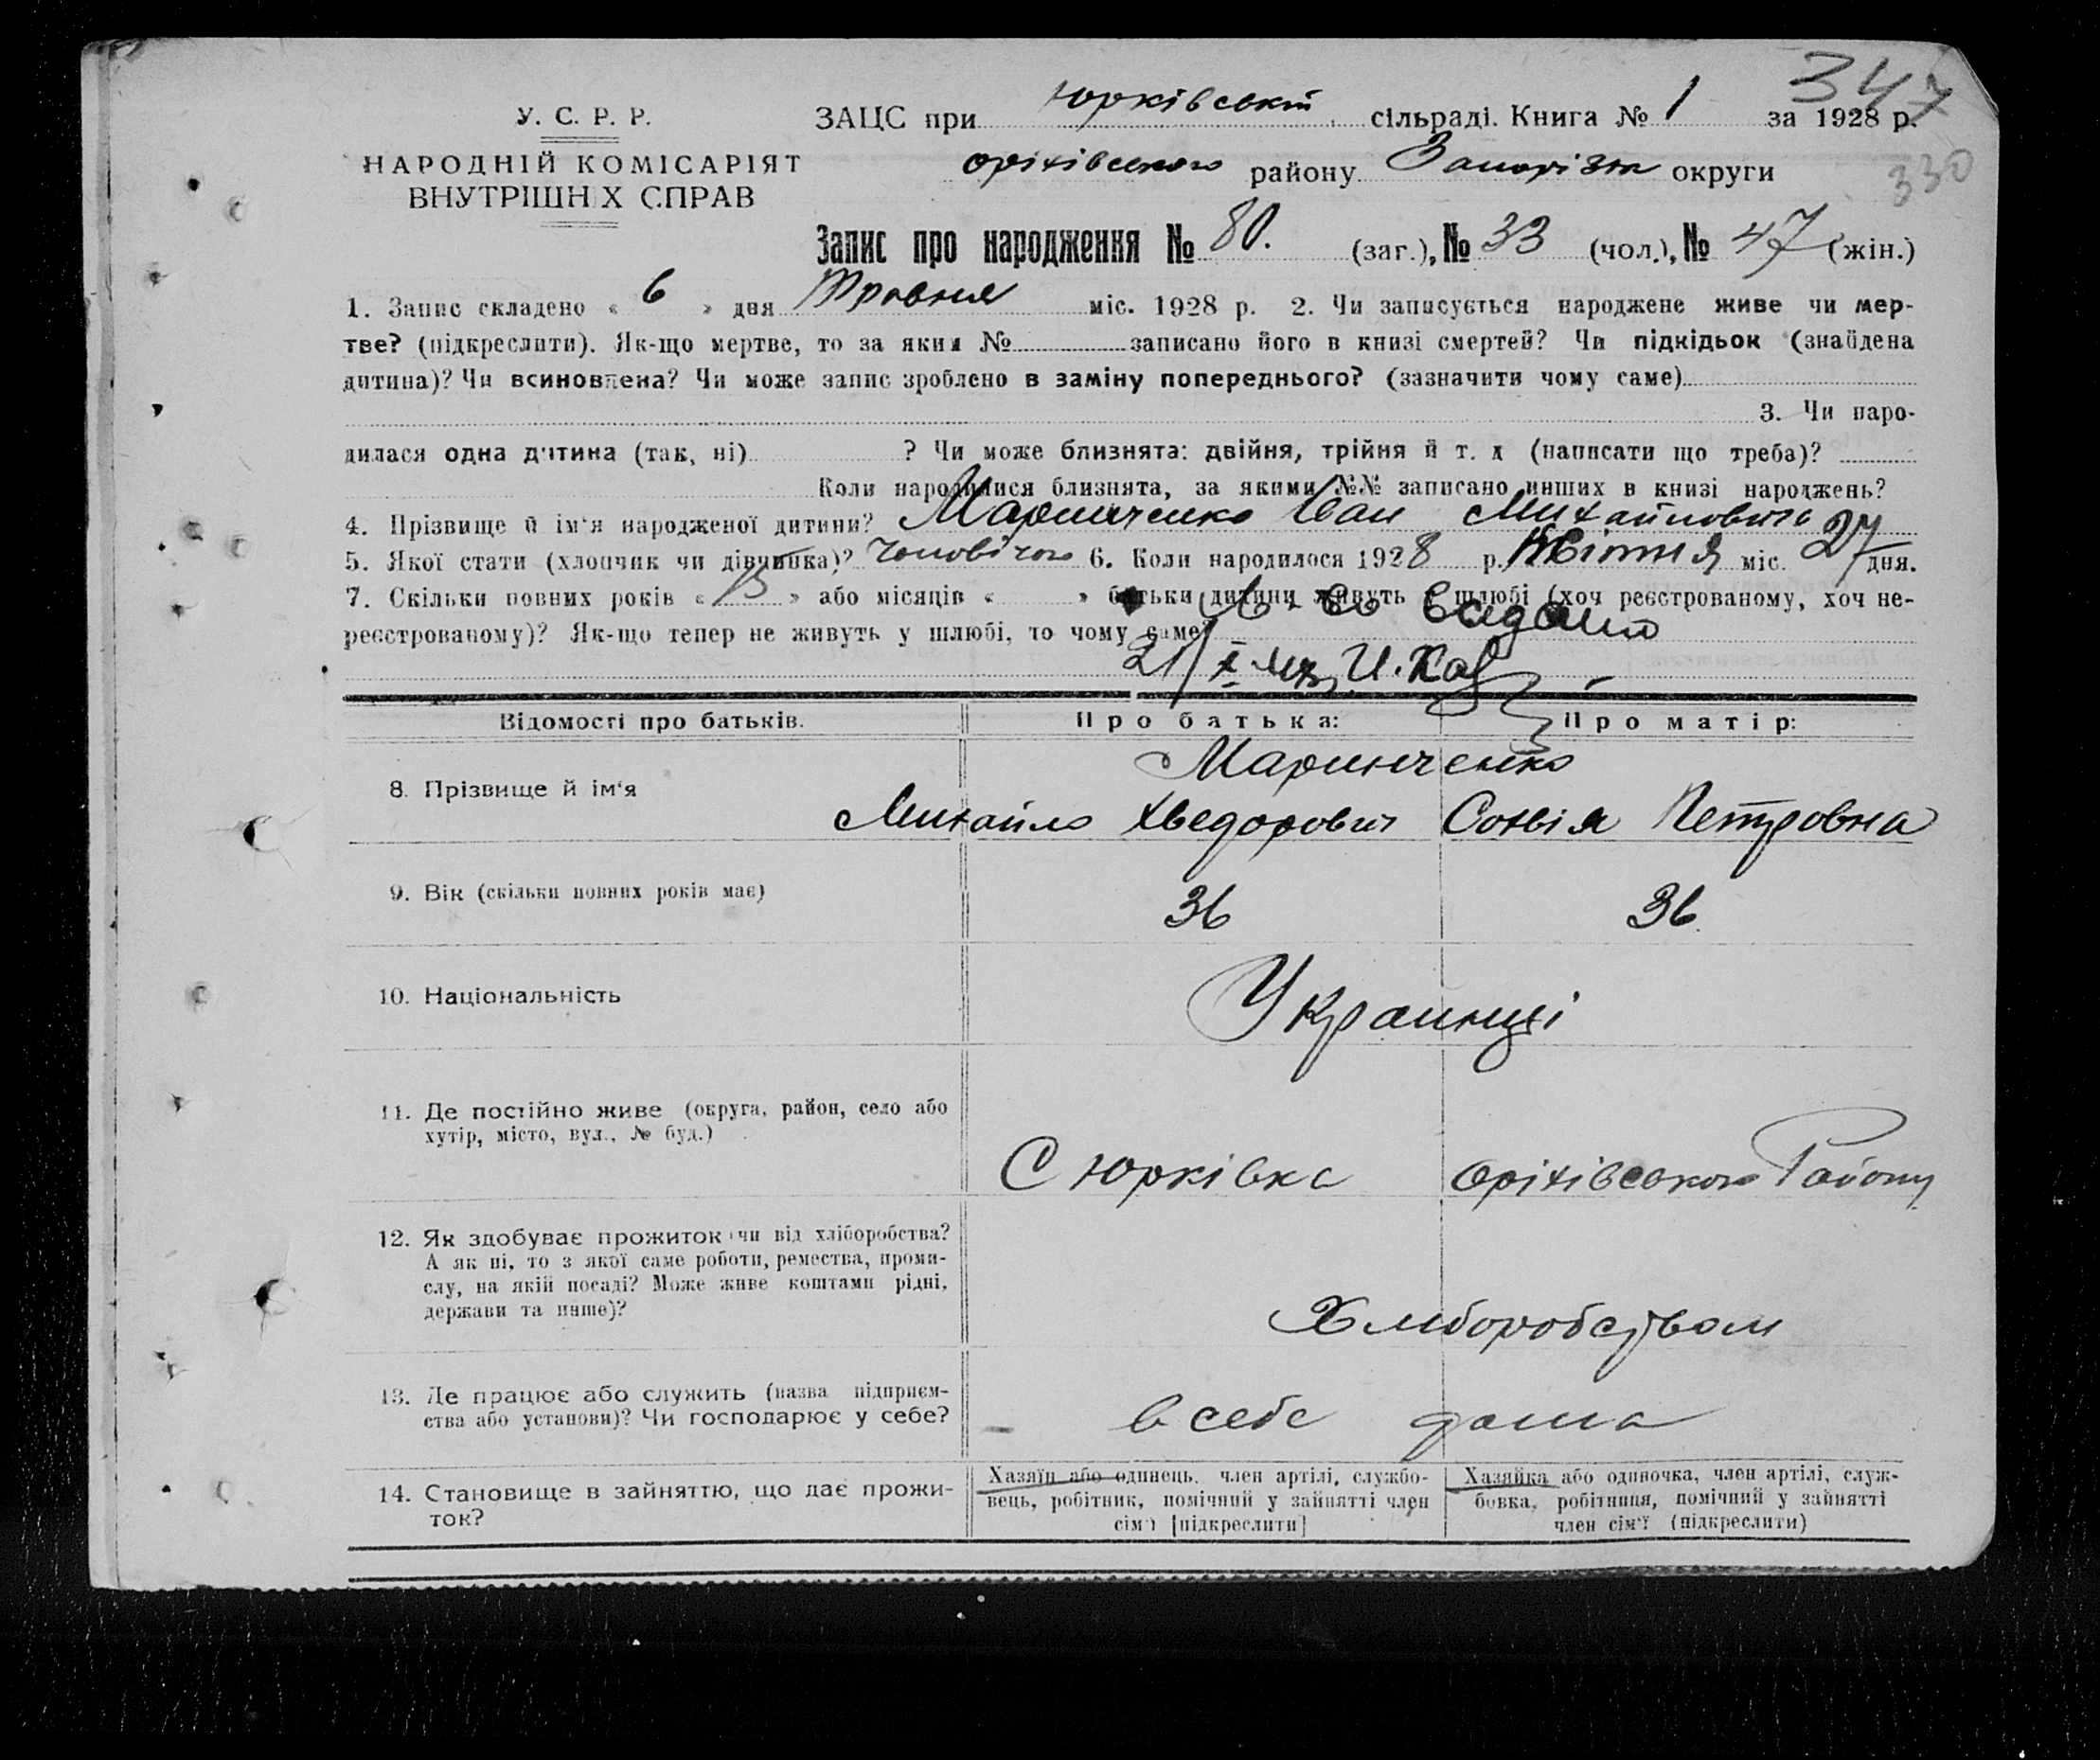 347
330
У. С. Р. Р.
НАРОДНІЙ КОМІСАРІЯТ
ВНУТРІШН Х СПРАВ
ЗАЦС при Юрківській сільраді. Книга № 1 за 1928 р.
Оріхівського району Запорізьк округи
Запис про народження № 80. (заг.), № 33 (чол.), № 47 (жін.)
1. Запис складено « 6 » дня Травня міс. 1928 р. 2. Чи записується народжене живе чи мер-
тве? (підкреслити). Як-що мертве, то за яким № записано його в книзі смертей? Чи підкідьок (знайдена
дитина)? Чи всиновлена? Чи може запис зроблено в заміну попереднього? (зазначити чому саме)
3. Чи наро-
дилася одна дитина (так, ні) ? Чи може близнята: двійня, трійня й т. д (написати що треба)?
Коли народилися близнята, за якими №№ записано инших в книзі народжень?
4. Прізвище й ім'я народженої дитини? Маринченко Іван Михайлович
5. Якої стати (хлопчик чи дівчинка)? Чоловічого 6. Коли народилося 1928 р. Квітня міс. 27 дня.
7. Скільки повних років « 15 » або місяців « » батьки дитини живуть у шлюбі (хоч реєстрованому, хоч не-
реєстрованому)? Як-що тепер не живуть у шлюбі, то чому саме?
Св-во видано
21/X
Відомості про батьків. Про батька: Про матір:
Маринченко
8. Прізвище й ім'я Михайло Хведорович Софвія Петровна
9. Вік (скільки повних років має) 36 36
10. Національність Украинці
11. Де постійно живе (округа, район, село або
хутір, місто, вул., № буд.)
С Юрківка Оріхівського Району
12. Як здобуває прожиток чи від хліборобства?
А як ні, то з якої саме роботи, ремества, проми-
слу, на якій посаді? Може живе коштами рідні,
держави та инше)?
Хлиборобством
13. Де працює або служить (назва підприєм-
ства або установи)? Чи господарює у себе?
в себе дома
14. Становище в зайняттю, що дає прожи-
ток?
Хазяїн або одинець, член артілі, службо-
вець, робітник, помічний у зайнятті член
сім'ї [підкреслити]
Хазяйка або одиночка, член артілі, служ-
бовка, робітниця, помічний у зайнятті
член сім'ї (підкреслити)